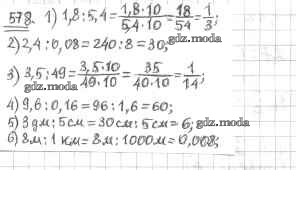 578. 1) 1,8 : 5,4 = 1,8·10/5,4·10 = 18/54 = 1/3;
2) 2,4 : 0,08 = 240 : 8 = 30; gdz.moda
3) 3,5 : 49 = 3,5·10/49·10 = 35/40·10 = 1/14;
gdz.moda
4) 9,6 : 0,16 = 96 : 1,6 = 60;
5) 3 дм : 5 см = 30 см : 5 см = 6; gdz.moda
6) 8 м : 1 км = 8 м : 1000 м = 0,008;